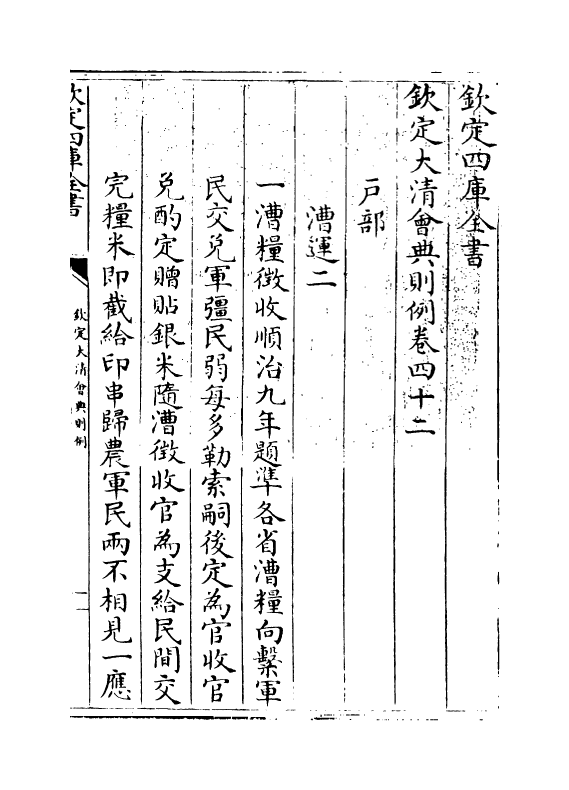 欽定四庫全書
欽定大清會典則例卷四十二
戸部
漕運二
一漕糧徵收順治九年題準各省漕糧向繫軍
民交兌軍彊民弱每多勒索嗣後定為官收官
兌酌定贈貼銀米隨漕徵收官為支給民間交
完糧米即截給印串歸農軍民兩不相見一應
欽定四庫全書
欽定大清會典則例
一